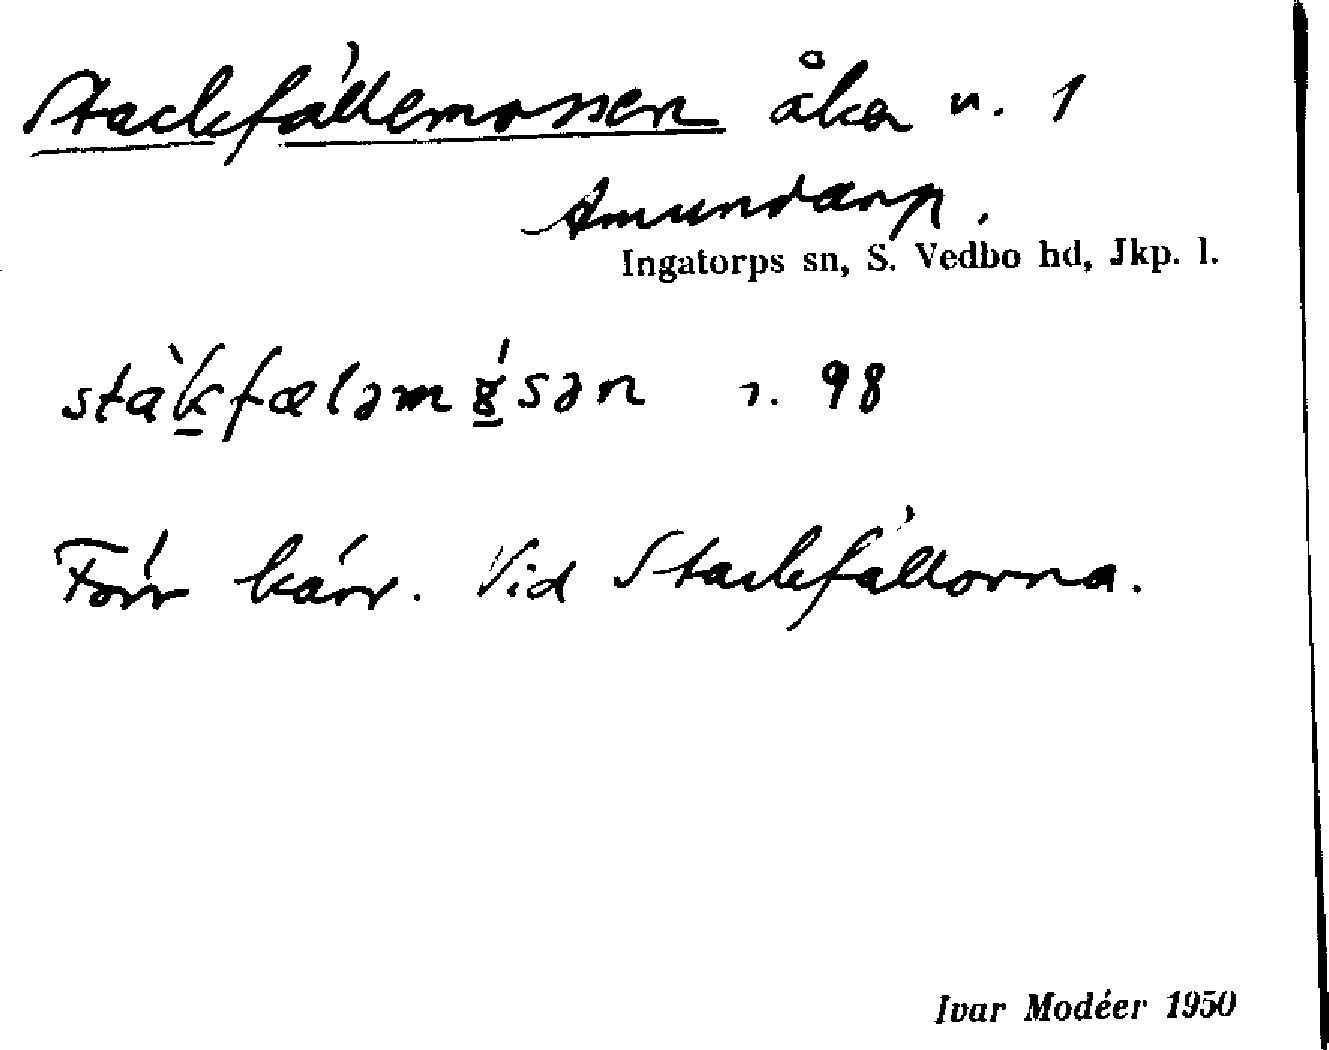 Stackfällemossen åker n. 1
Amundarp.
Ingatorps sn, S. Vedbo hd, Jkp. l.
stàk̲fæləmó̲sən 98
Förr kärr. Vid Stackfällorna.
Ivar Modéer 1950